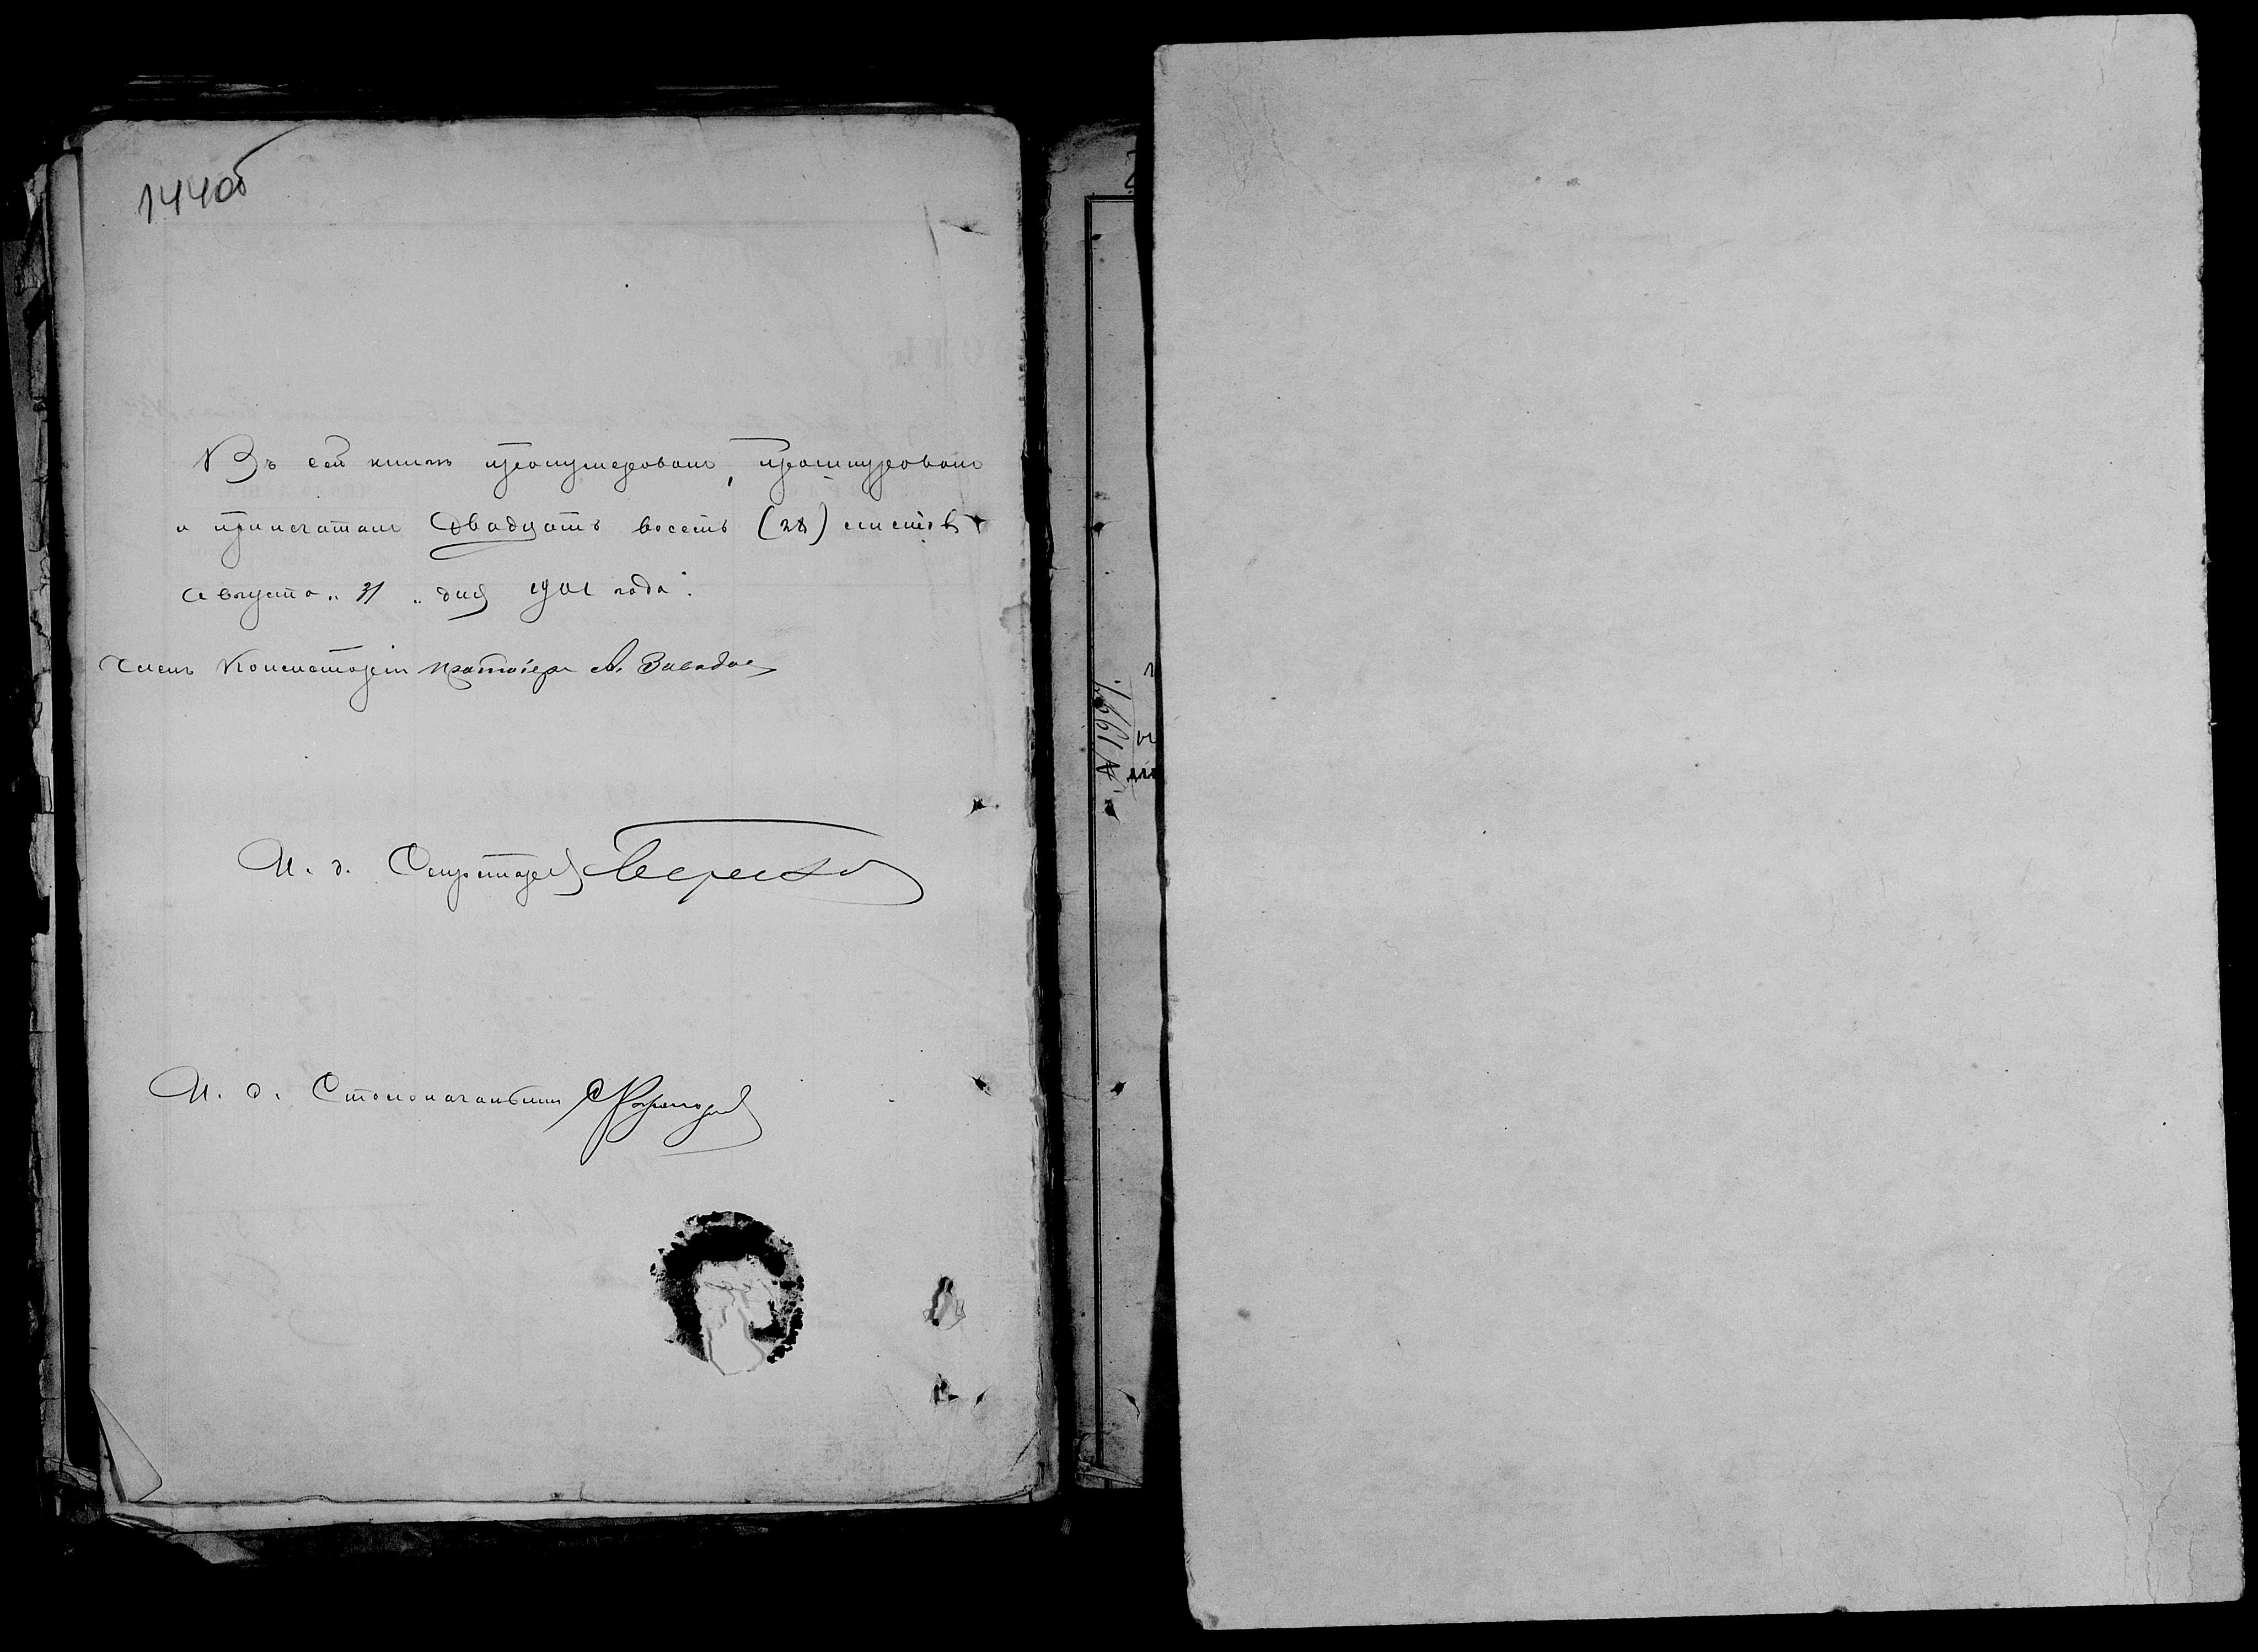 144об
Въ сей книгѣ пронумеровано, прошнуровано
и припечатано Двадцать восемь (28) листовъ
Августа „ 31 „ дня 1901 года.
Членъ Консисторіи протоіерей А. Заводов
И. д. Секретаря
И. д. Столоначальника